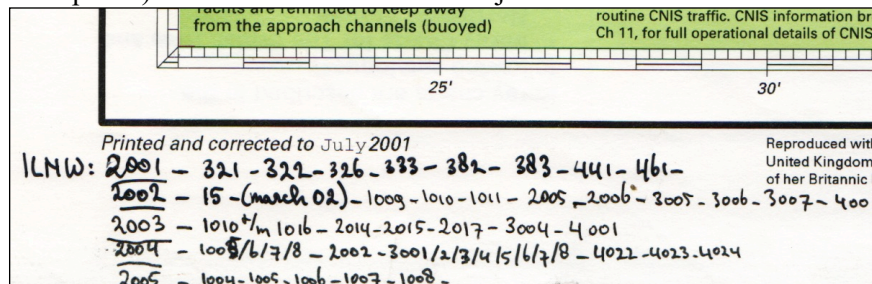 Yachts are reminded to keep away
from the approach channels (buoyed)
routine CNIS traffic. CNIS information br
Ch 11, for full operational details of CNIS
25'
30'
Printed and corrected to July 2001
Reproduced with
United Kingdom
of her Britannic
2001 - 321 - 322 - 326 - 333 - 382 - 383 - 441 - 461 -
2002 - 15 - (march 02) - 1009 - 1010 - 1011 - 2005 - 2006 - 3005 - 3006 - 3007 - 400
2003 - 1010 t/m 1016 - 2014 - 2015 - 2017 - 3004 - 4001
2004 - 1005/6/7/8 - 2002 - 3001/2/3/4/5/6/7/8 - 4022 - 4023 - 4024
2005 - 1004 - 1005 - 1006 - 1007 - 1008 -